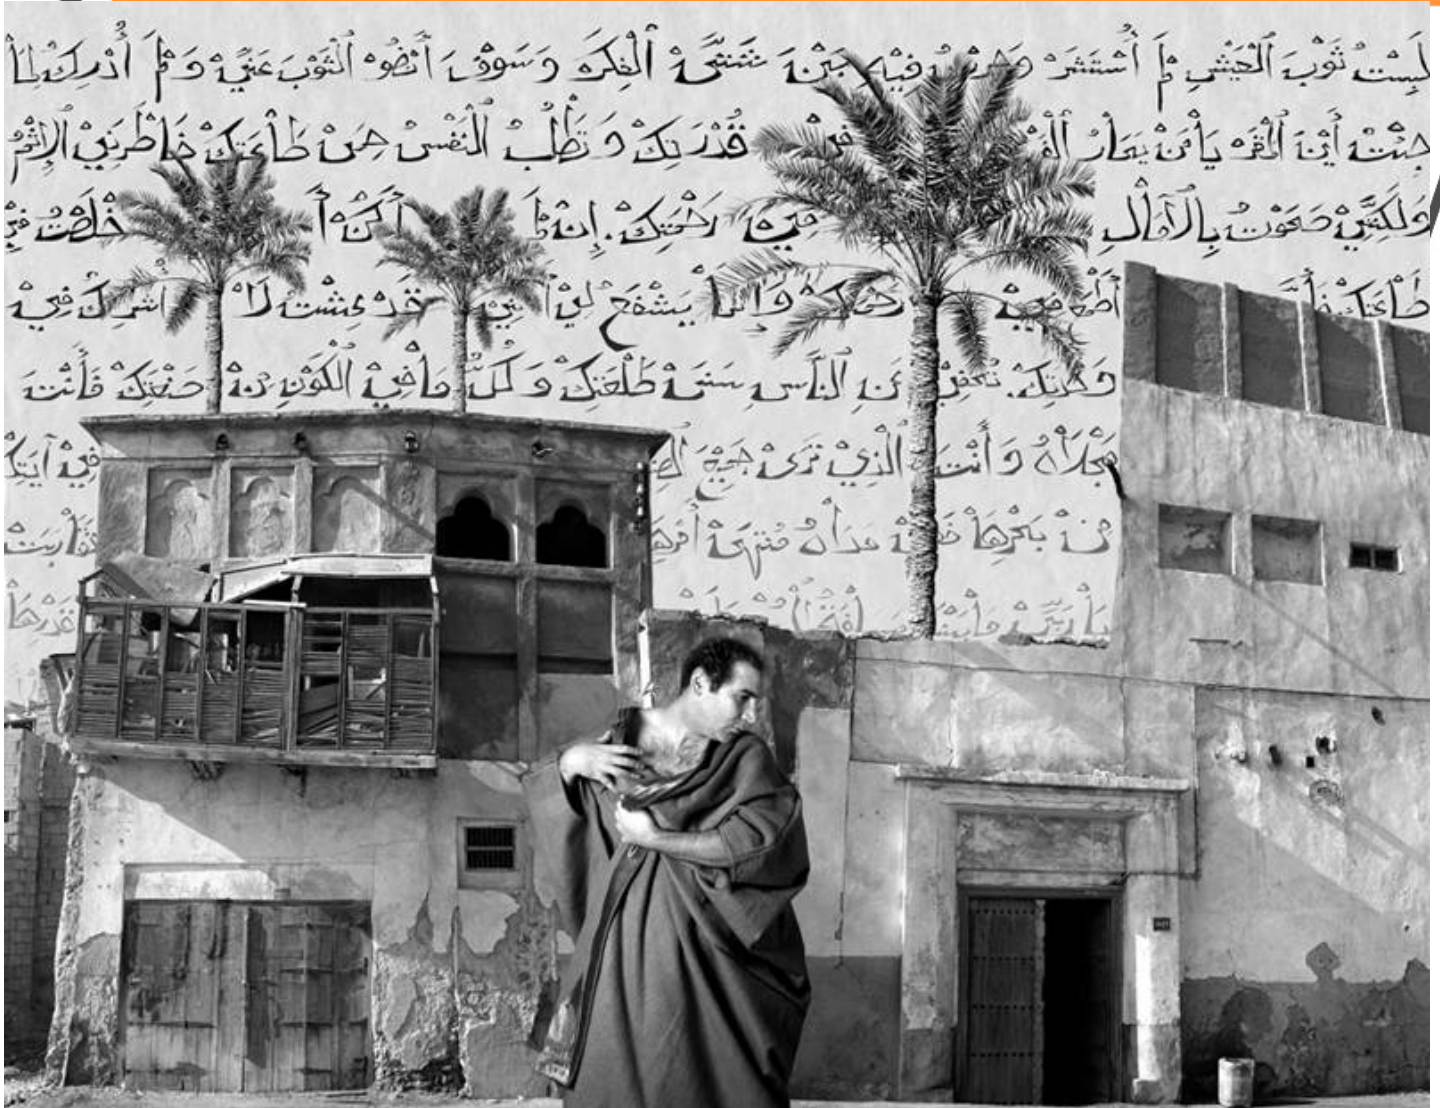 لَبِسْتُ ثَوْبَ الْعَيْشِ لَمْ أُسْتَشَرْ وَحِرْتُ فِيْهِ بَيْنَ شَتَّى الْفِكَرْ وَسَوْفَ أَنْضُوْ الثَّوْبَ عَنِّيْ وَلَمْ أُدْرِكْ لِمَا
جِئْتُ أَيْنَ الْمَفَرْ يَا مَنْ يَحَارُ قُدْرَتِكْ وَ تَطْلُبُ النَّفْسُ حِمَىْ طَاْعَتِكْ خَاطَرَنِيْ الْإِثْمُ
وَلَكِنَّنِيْ صَحَوْتُ بِالْآمَالِ رَحْمَتِكْ. إِنْ لَمْ أَكُنْ أَخْلَصْتُ فِيْ
طَاعَتِكْ أَطْمَعُ فِيْ رَحْمَتِكْ وَإِنَّمَا يَشْفَعُ لِيْ أَنَّنِيْ قَدْ عِشْتُ لَا أُشْرِكُ فِيْ
وَحْدَتِكْ. تُخْفِيْ عَنِ النَّاسِ سَنَىْ طَلْعَتِكْ وَ كُلُّ مَا فِيْ الْكَوْنِ مِنْ صَنْعَتِكْ فَأَنْتَ
مَجْلَاْهُ وَ أَنْتَ الَّذِيْ تَرَىْ فِيْ آيَتِكْ
مِنْ بَحْرِهَا مَدَاهُ مُنْتَهَىْ أَمْرِهَا فَقَارَبَتْ
قَدْرَهَا